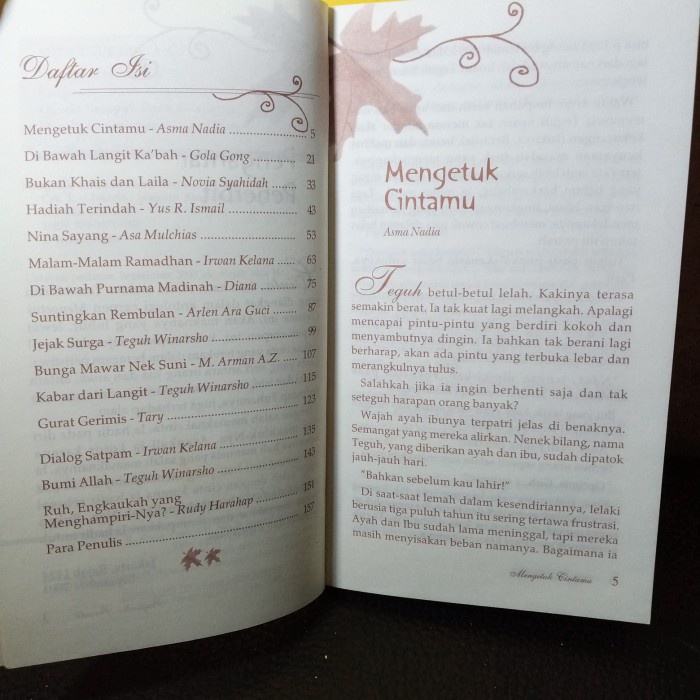 Daftar Isi
Mengetuk Cintamu - Asma Nadia ........................ 5
Di Bawah Langit Ka'bah - Gola Gong ............ 21
Bukan Khais dan Laila - Novia Syahidah ....... 33
Hadiah Terindah - Yus R. Ismail .................... 43
Nina Sayang - Asa Mulchias ........................... 53
Malam-Malam Ramadhan - Irwan Kelana ...... 63
Di Bawah Purnama Madinah - Diana ............. 75
Suntingkan Rembulan - Arlen Ara Guci ......... 87
Jejak Surga - Teguh Winarsho ......................... 99
Bunga Mawar Nek Suni - M. Arman A.Z. ..... 107
Kabar dari Langit - Teguh Winarsho .............. 115
Gurat Gerimis - Tary ..................................... 123
Dialog Satpam - Irwan Kelana ....................... 135
Bumi Allah - Teguh Winarsho ........................ 143
Ruh, Engkaukah yang
Menghampiri-Nya? - Rudy Harahap ............. 151
Para Penulis .................................................. 157
Mengetuk
Cintamu
Asma Nadia
Teguh betul-betul lelah. Kakinya terasa
semakin berat. Ia tak kuat lagi melangkah. Apalagi
mencapai pintu-pintu yang berdiri kokoh dan
menyambutnya dingin. Ia bahkan tak berani lagi
berharap, akan ada pintu yang terbuka lebar dan
merangkulnya tulus.
Salahkah jika ia ingin berhenti saja dan tak
seteguh harapan orang banyak?
Wajah ayah ibunya terpatri jelas di benaknya.
Semangat yang mereka alirkan. Nenek bilang, nama
Teguh, yang diberikan ayah dan ibu, sudah dipatok
jauh-jauh hari.
"Bahkan sebelum kau lahir!"
Di saat-saat lemah dalam kesendiriannya, lelaki
berusia tiga puluh tahun itu sering tertawa frustrasi.
Ayah dan Ibu sudah lama meninggal, tapi mereka
masih menyisakan beban namanya. Bagaimana ia
Mengetuk Cintamu 5